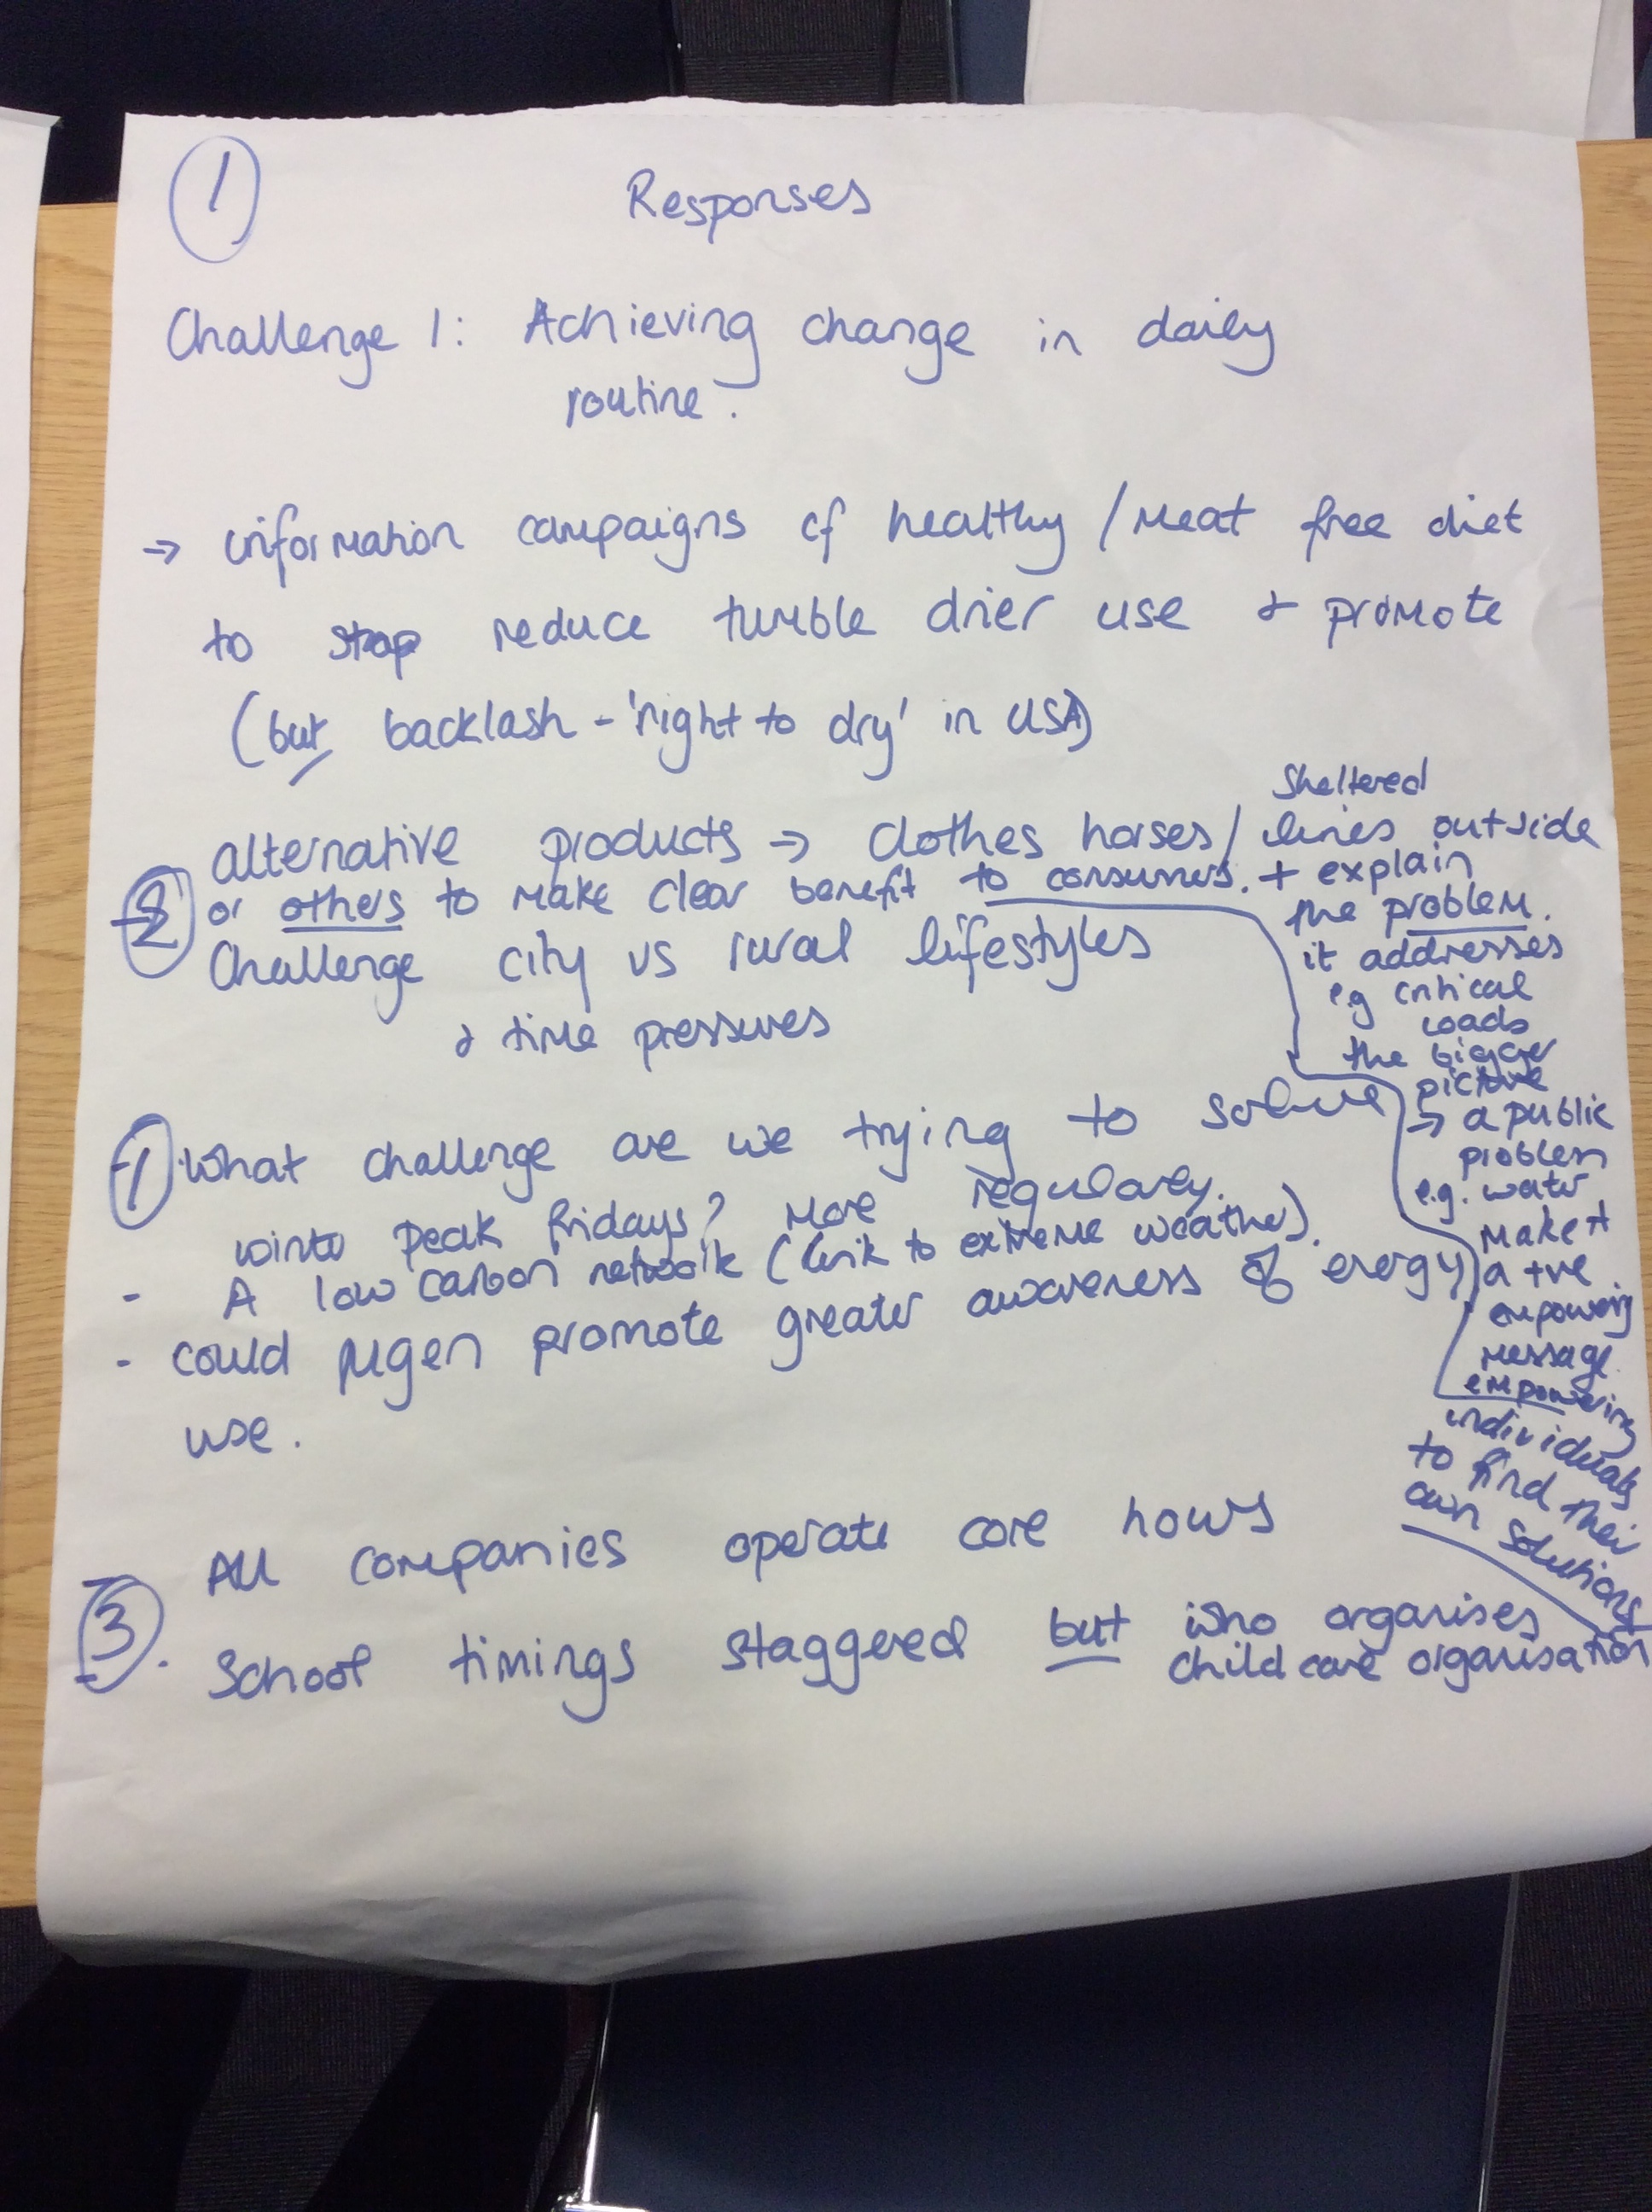 1
Responses
Challenge 1: Achieving change in daily
routine.
→ information campaigns cf healthy / meat free diet
to stop reduce tumble drier use & promote
(but backlash - 'right to dry' in USA)
alternative products → clothes horses / sheltered lines outside
2 or others to make clear benefit to consumers. + explain
the problem.
it addresses
e.g critical
loads
the bigger
picture
→ a public
problem
e.g. water
make +
a +ve
empowering
message.
empowering
individuals
to find their
own solutions
Challenge city vs rural lifestyles
& time pressures
1 What challenge are we trying to solve
winter peak fridays? More regularly.
- A low carbon network (link to extreme weather).
- could μgen promote greater awareness of energy
use.
All companies operate core hours
3. School timings staggered but who organises
child care organisation